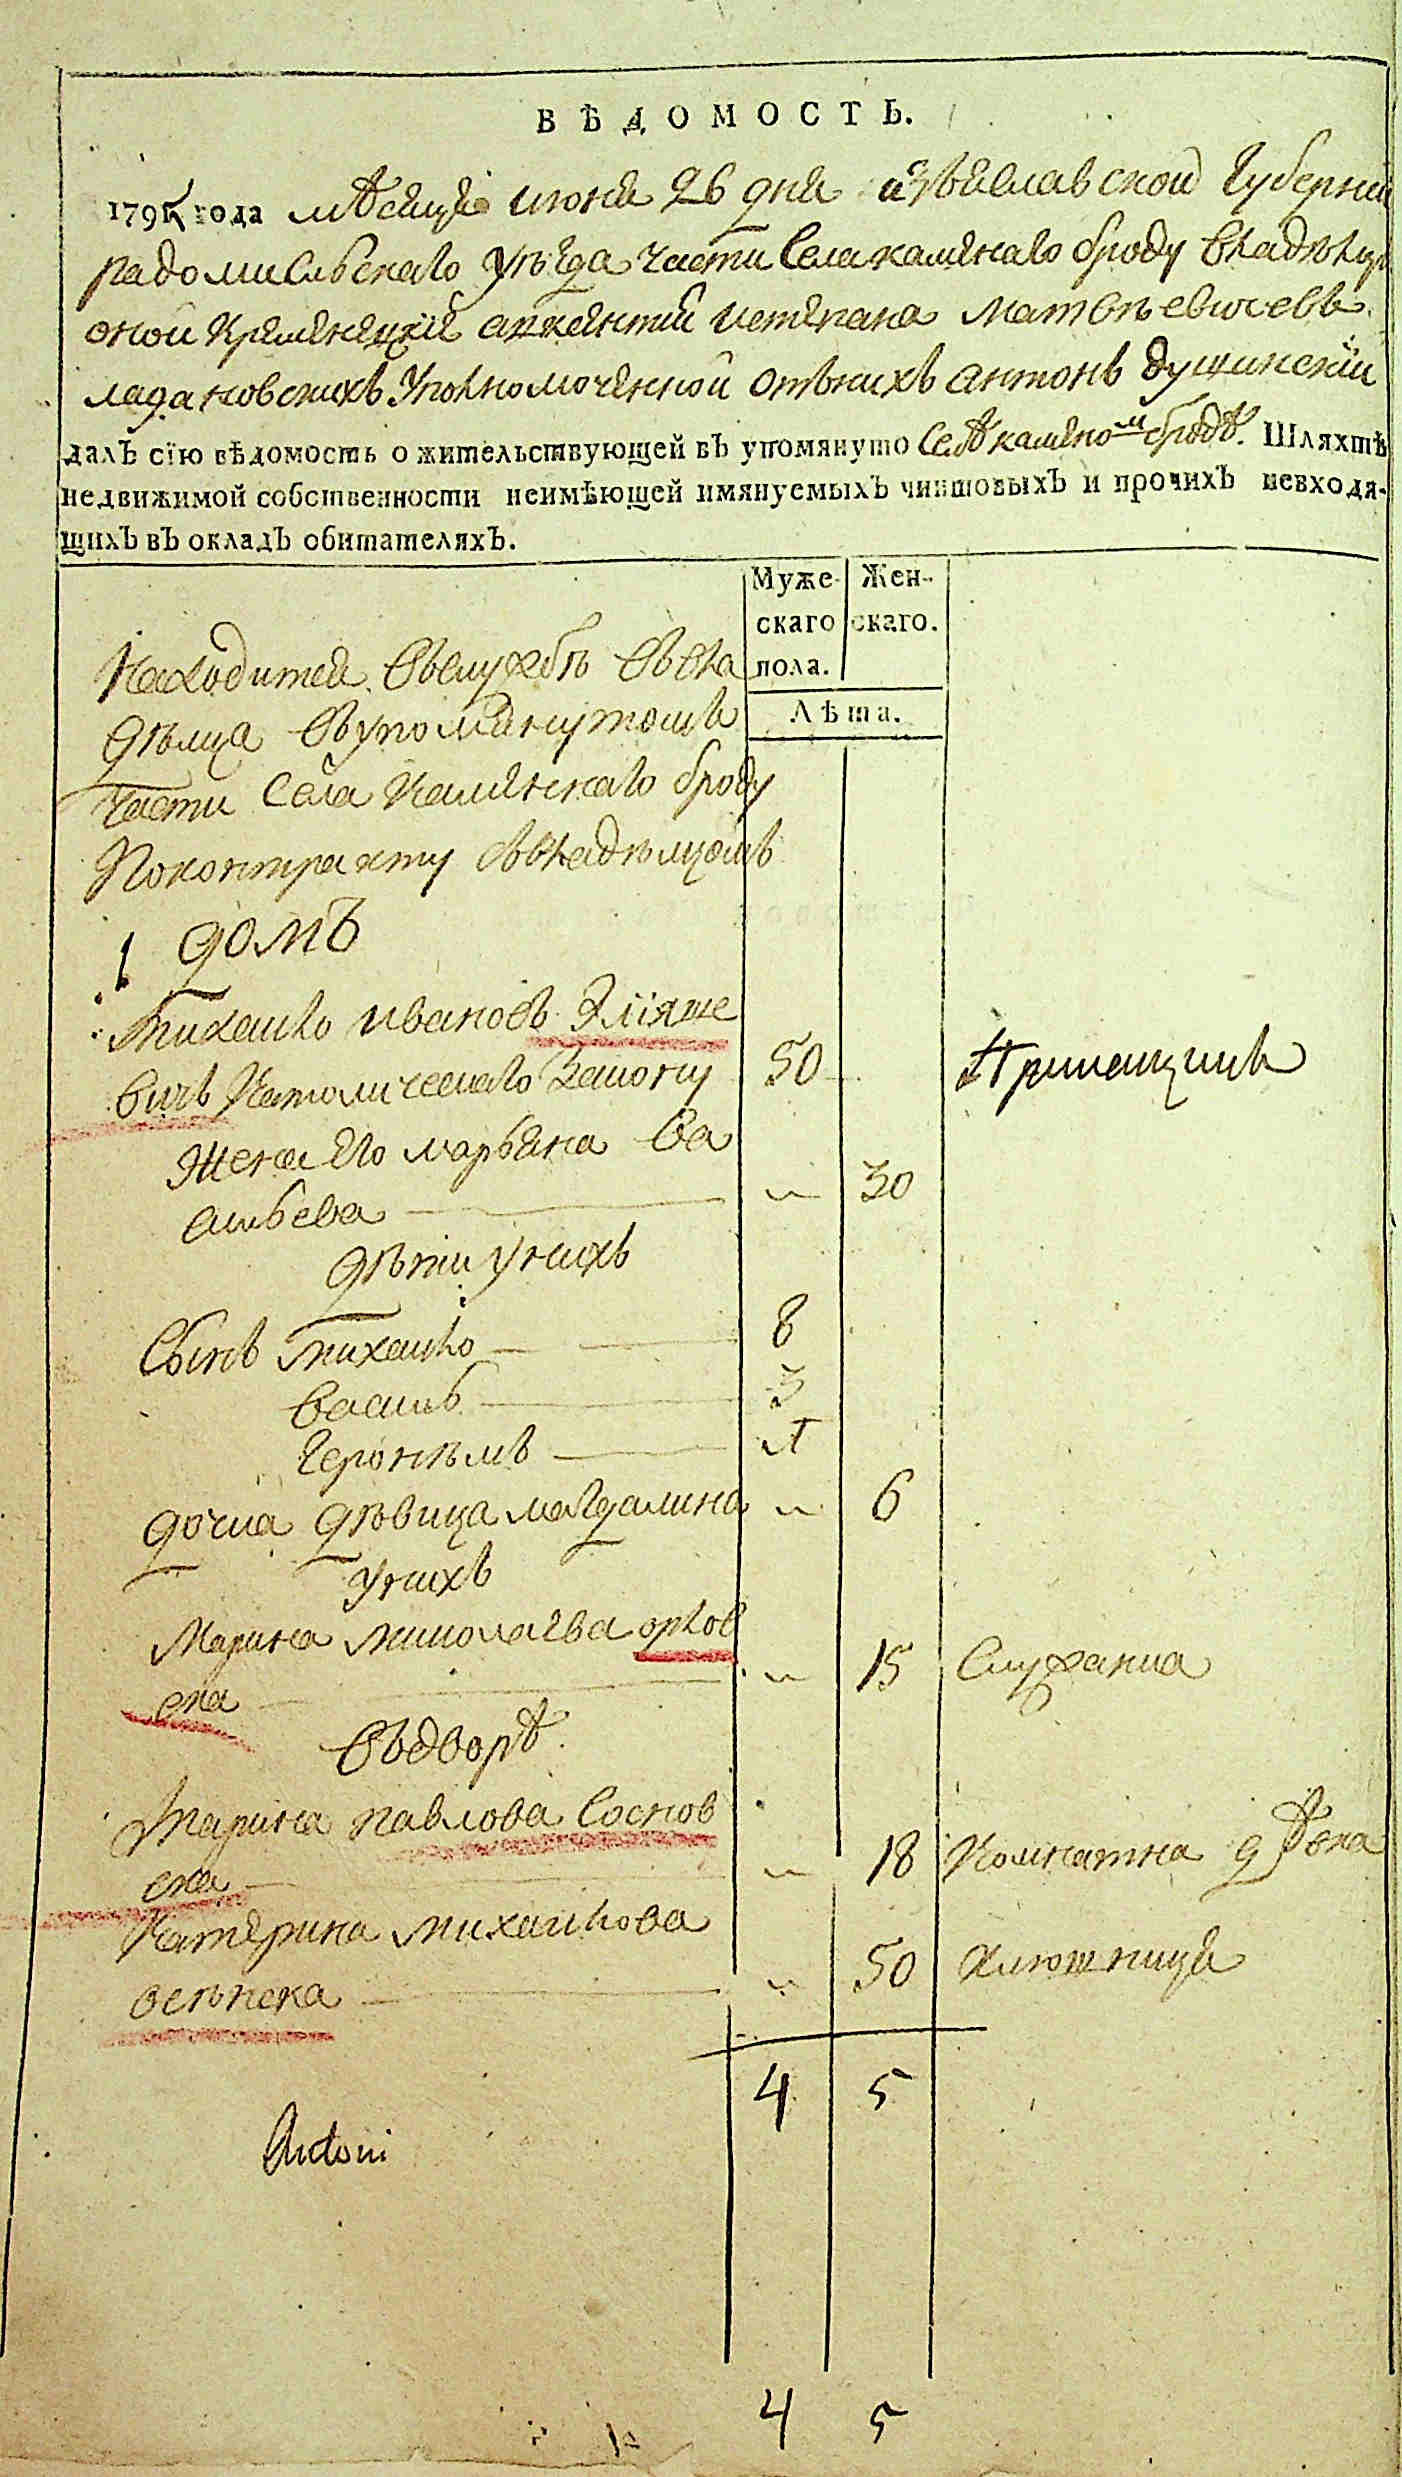 ВѢДОМОСТЬ.
1795 года мѣсяца июня 26 дня изъяславской губернии
радомисльскаго уѣзда части Села каменаго броду владѣлцы
оной Кременецкие
ладановскихъ Уполномоченной отъ нихъ антонъ душинский
далъ сїю вѣдомость о жительствующей въ упомянуто Селѣ камено м бродѣ. Шляхтѣ
недвижимой собственности неимѣющей имянуемыхъ чиншовыхъ и прочихъ невходя-
щихъ въ окладъ обитателяхъ.
Муже- Жен-
скаго скаго.
пола.
Лѣта.
Находится въ службѣ въ вла
дѣлца въ упомянутомъ
части Села Каменнаго броду
По контракту въ владѣлцомъ
1 домъ
михайло ивановъ Элїяше
вичъ Католическаго Закону 50 Прикащикъ
жена его марьяна ва
сильева " 30
дѣти у нихъ
Сынъ михайло 8
василь 3
Геронѣмъ 1
дочка дѣвица магдалина " 6
У нихъ
Марина миколаева орлов
ска " 15 Служанка
въ дворѣ
марина павлова Соснов
ска " 18 Комнатна дѣвка
Катерина михайлова
" 50 Ключница
4 5
Antoni
4 5